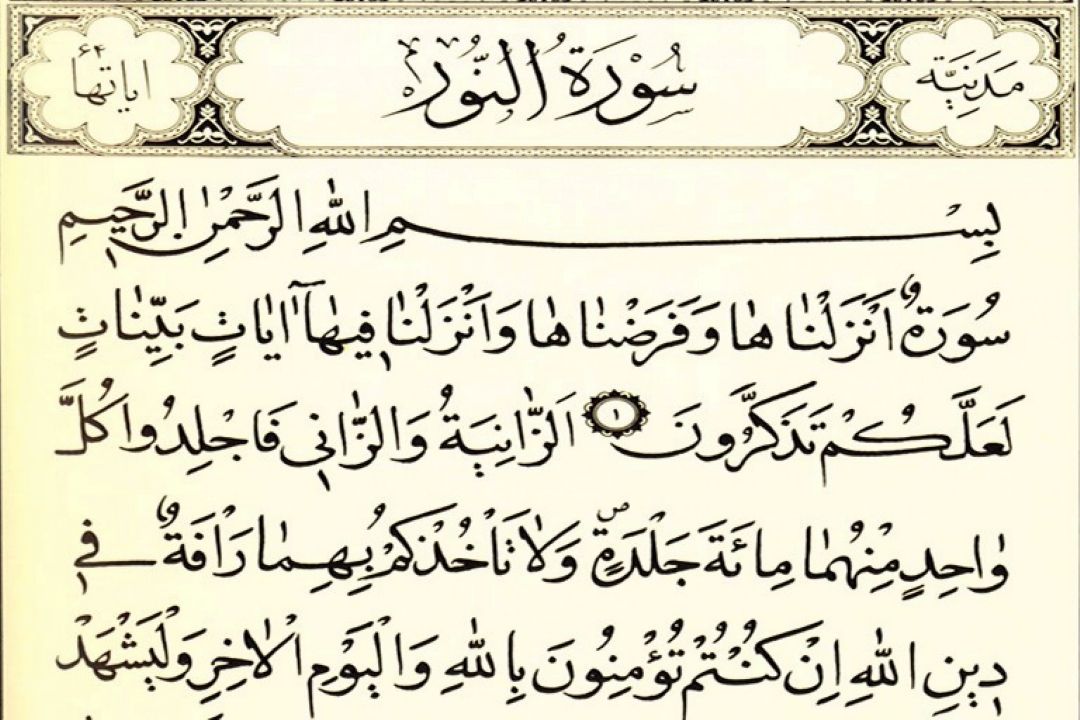 مَدَنِيَّة سُورَةُ النُّورِ اٰيَاتُهَا ٦٤
بِسْمِ اللّٰهِ الرَّحْمٰنِ الرَّحِيمِ
سُورَةٌ اَنْزَلْنَاهَا وَفَرَضْنَاهَا وَاَنْزَلْنَا فِيهَٓا اٰيَاتٍ بَيِّنَاتٍ
لَعَلَّكُمْ تَذَكَّرُونَ ١ اَلزَّانِيَةُ وَالزَّانِي فَاجْلِدُوا كُلَّ
وَاحِدٍ مِنْهُمَا مِائَةَ جَلْدَةٍۖ وَلَا تَاْخُذْكُمْ بِهِمَا رَاْفَةٌ فِي
دِينِ اللّٰهِ اِنْ كُنْتُمْ تُؤْمِنُونَ بِاللّٰهِ وَالْيَوْمِ الْاٰخِرِ وَلْيَشْهَدْ